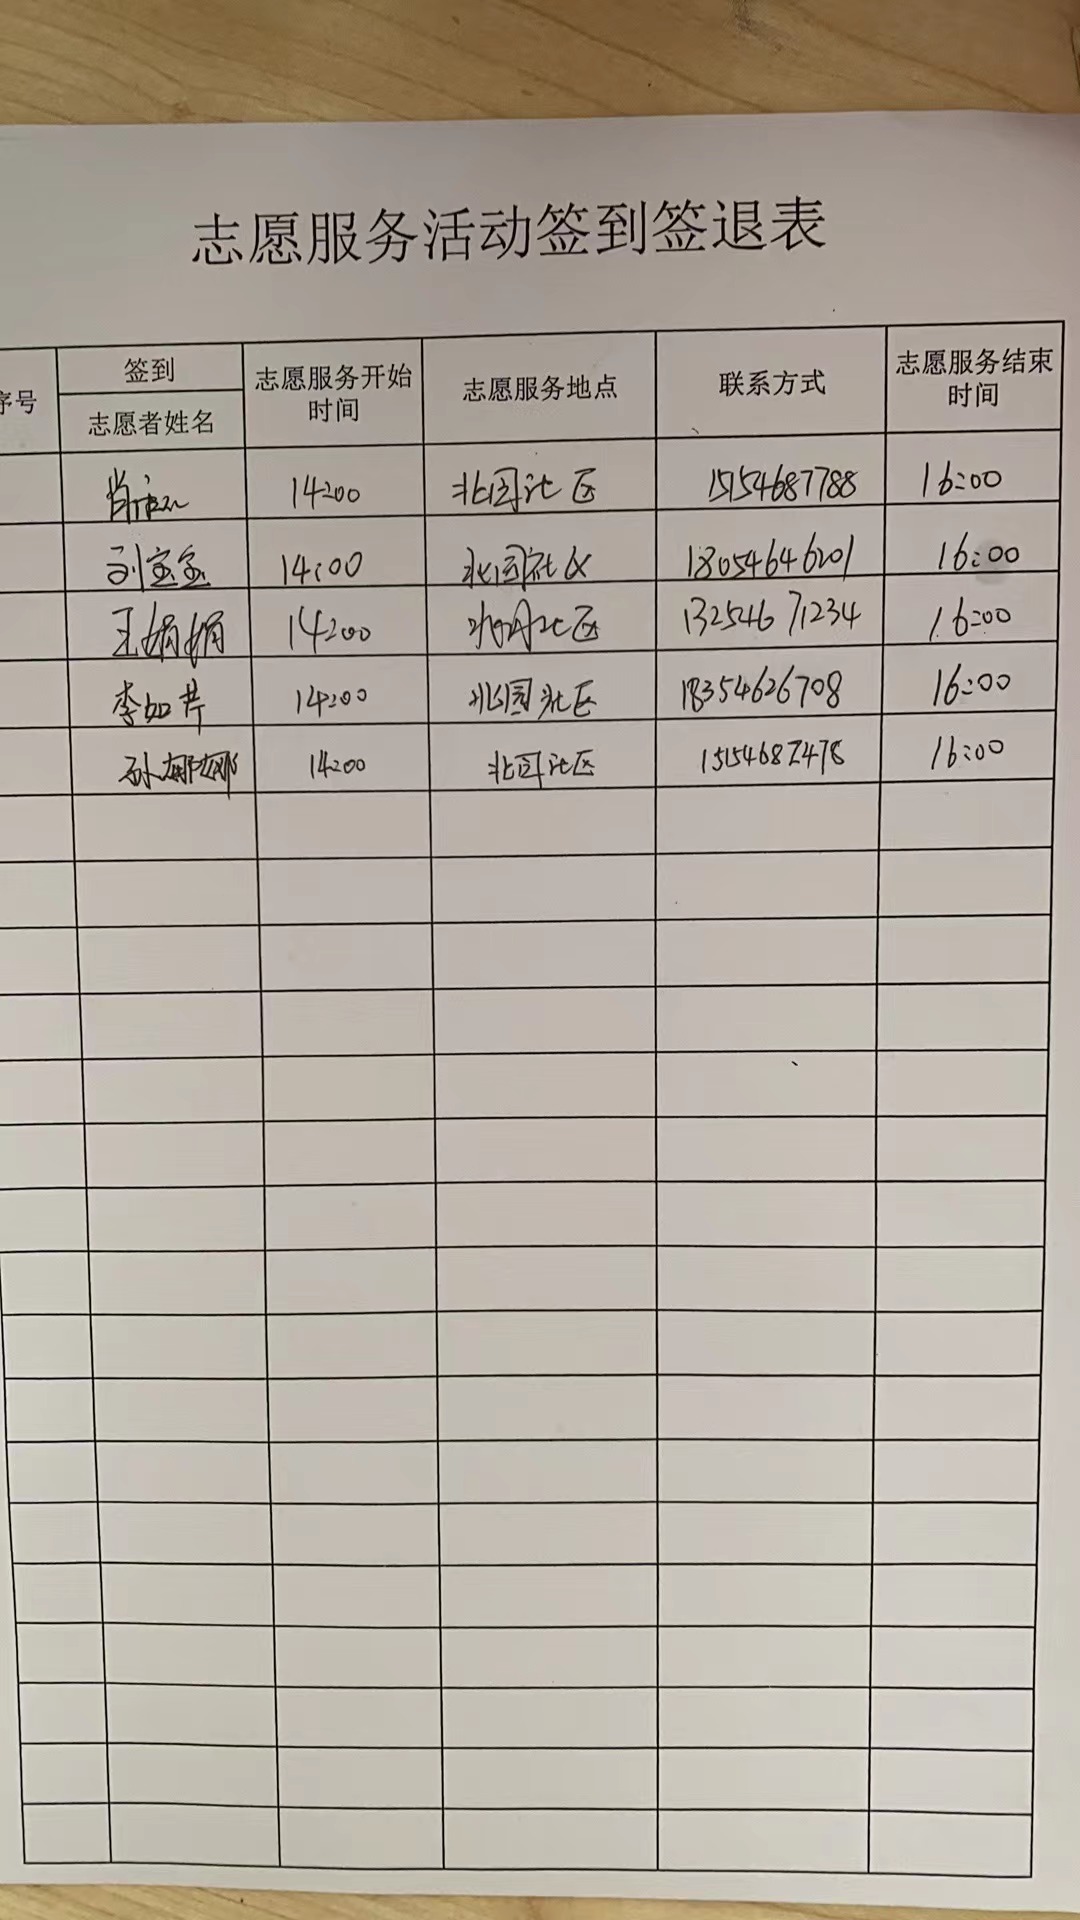 志愿服务活动签到签退表
序号 签到 志愿者姓名 志愿服务开始时间 志愿服务地点 联系方式 志愿服务结束时间
14:00 北园社区 15154687788 16:00
刘宝宝 14:00 北园社区 18054646201 16:00
王娟娟 14:00 北园社区 13254671234 16:00
李如芹 14:00 北园社区 18354626708 16:00
孙娜娜 14:00 北园社区 16:00